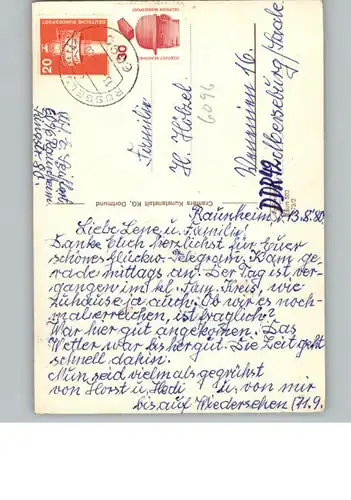 DEUTSCHE BUNDESPOST
20
30
DEUTSCHE BUNDESPOST
RÜSSELSHEIM
Familie
H. Hötzel
6096
DDR 42
Cramers Kunstanstalt KG, Dortmund
Raunheim, 13.8.80.
Liebe Lene u. Familie!
Danke Euch herzlichst für Euer
schönes Glückw. Telegram. Kam ge-
rade mittags an. Der Tag ist ver-
gangen im kl. Fam. Kreis, wie
zuhause ja auch. Ob wir es noch-
mal erreichen, ist fraglich?
War hier gut angekommen. Das
Wetter war bis her gut. Die Zeit geht
schnell dahin.
Nun seid vielmals gegrüßt
von Horst u. Hedi u. von mir
bis auf Wiedersehen